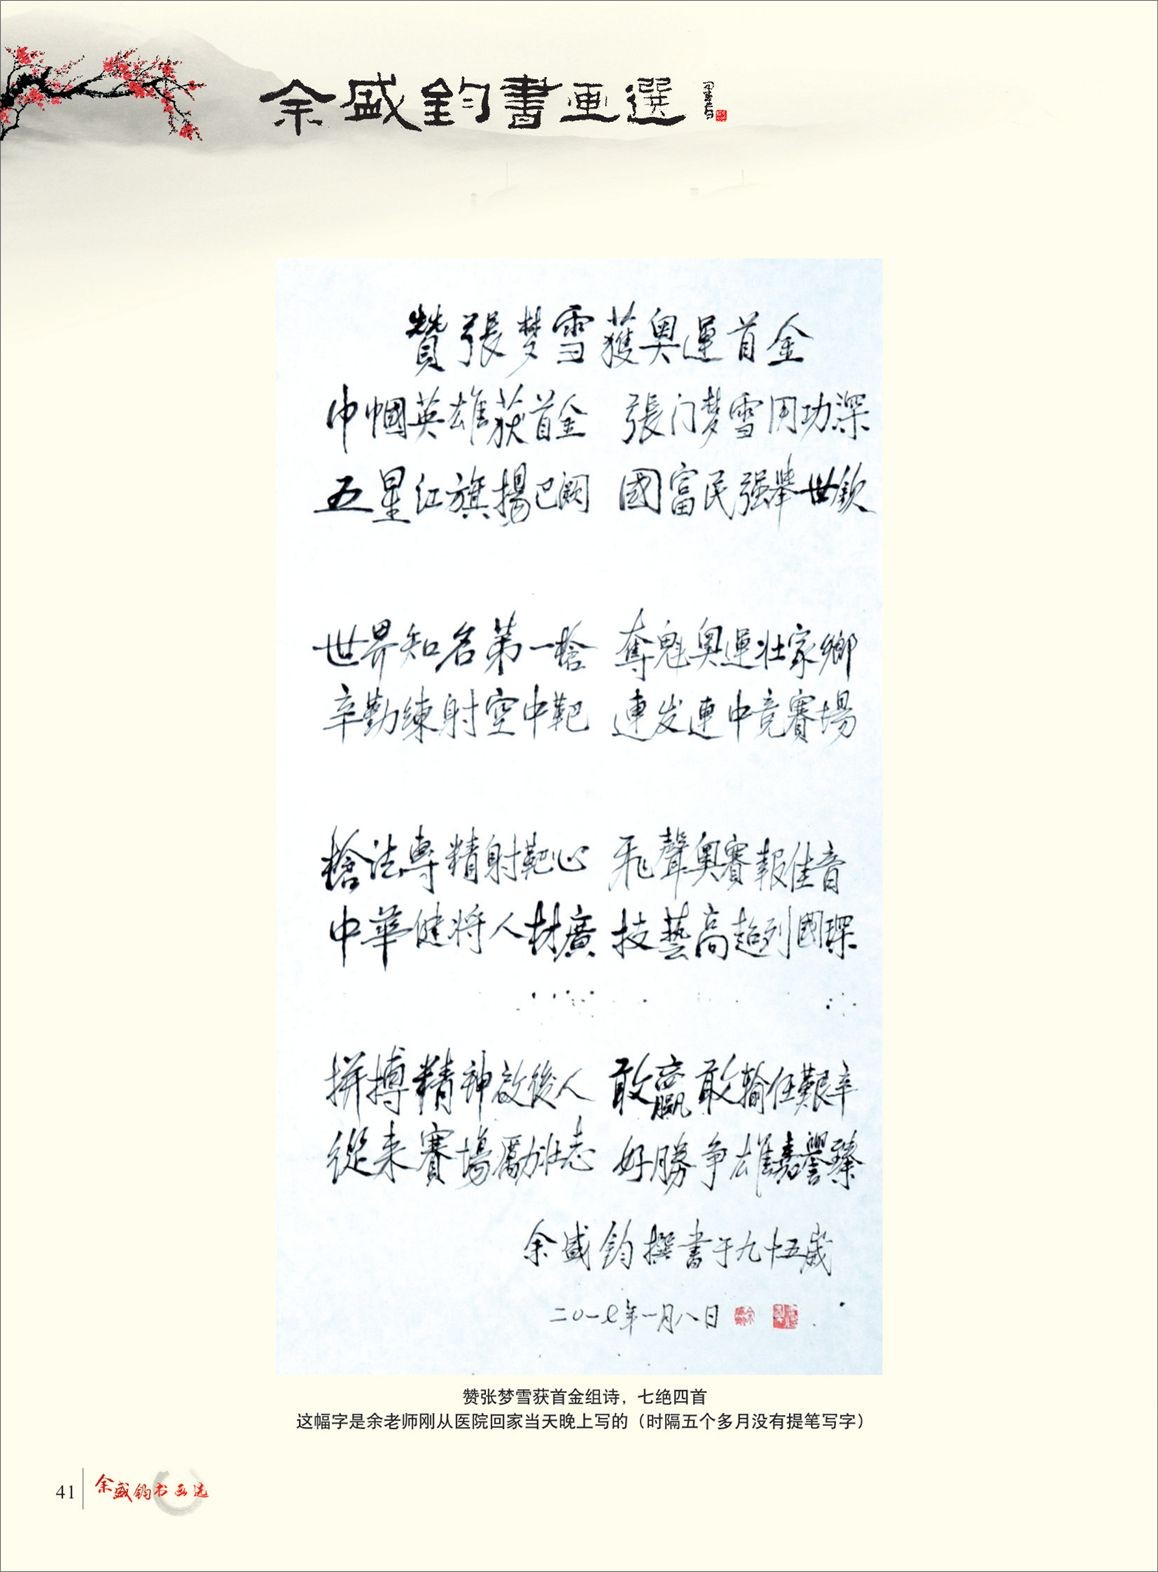 余盛钧書画選
贊張梦雪獲奥運首金
巾帼英雄获首金 張门梦雪用功深
五星红旗揚巴阙 國富民强舉世欽
世界知名第一槍 奪魁奥運壮家鄉
辛勤練射空中靶 連发連中竞賽場
槍法專精射靶心 飛聲奥賽報佳音
中華健将人材廣 技藝高超列國琛
拼搏精神啟後人 敢贏敢輸任艱辛
從来賽場勵壯志 好勝争雄嘉譽臻
余盛钧撰書于九十五歲
二〇一七年一月八日
赞张梦雪获首金组诗，七绝四首
这幅字是余老师刚从医院回家当天晚上写的（时隔五个多月没有提笔写字）
41 余盛钧书画选